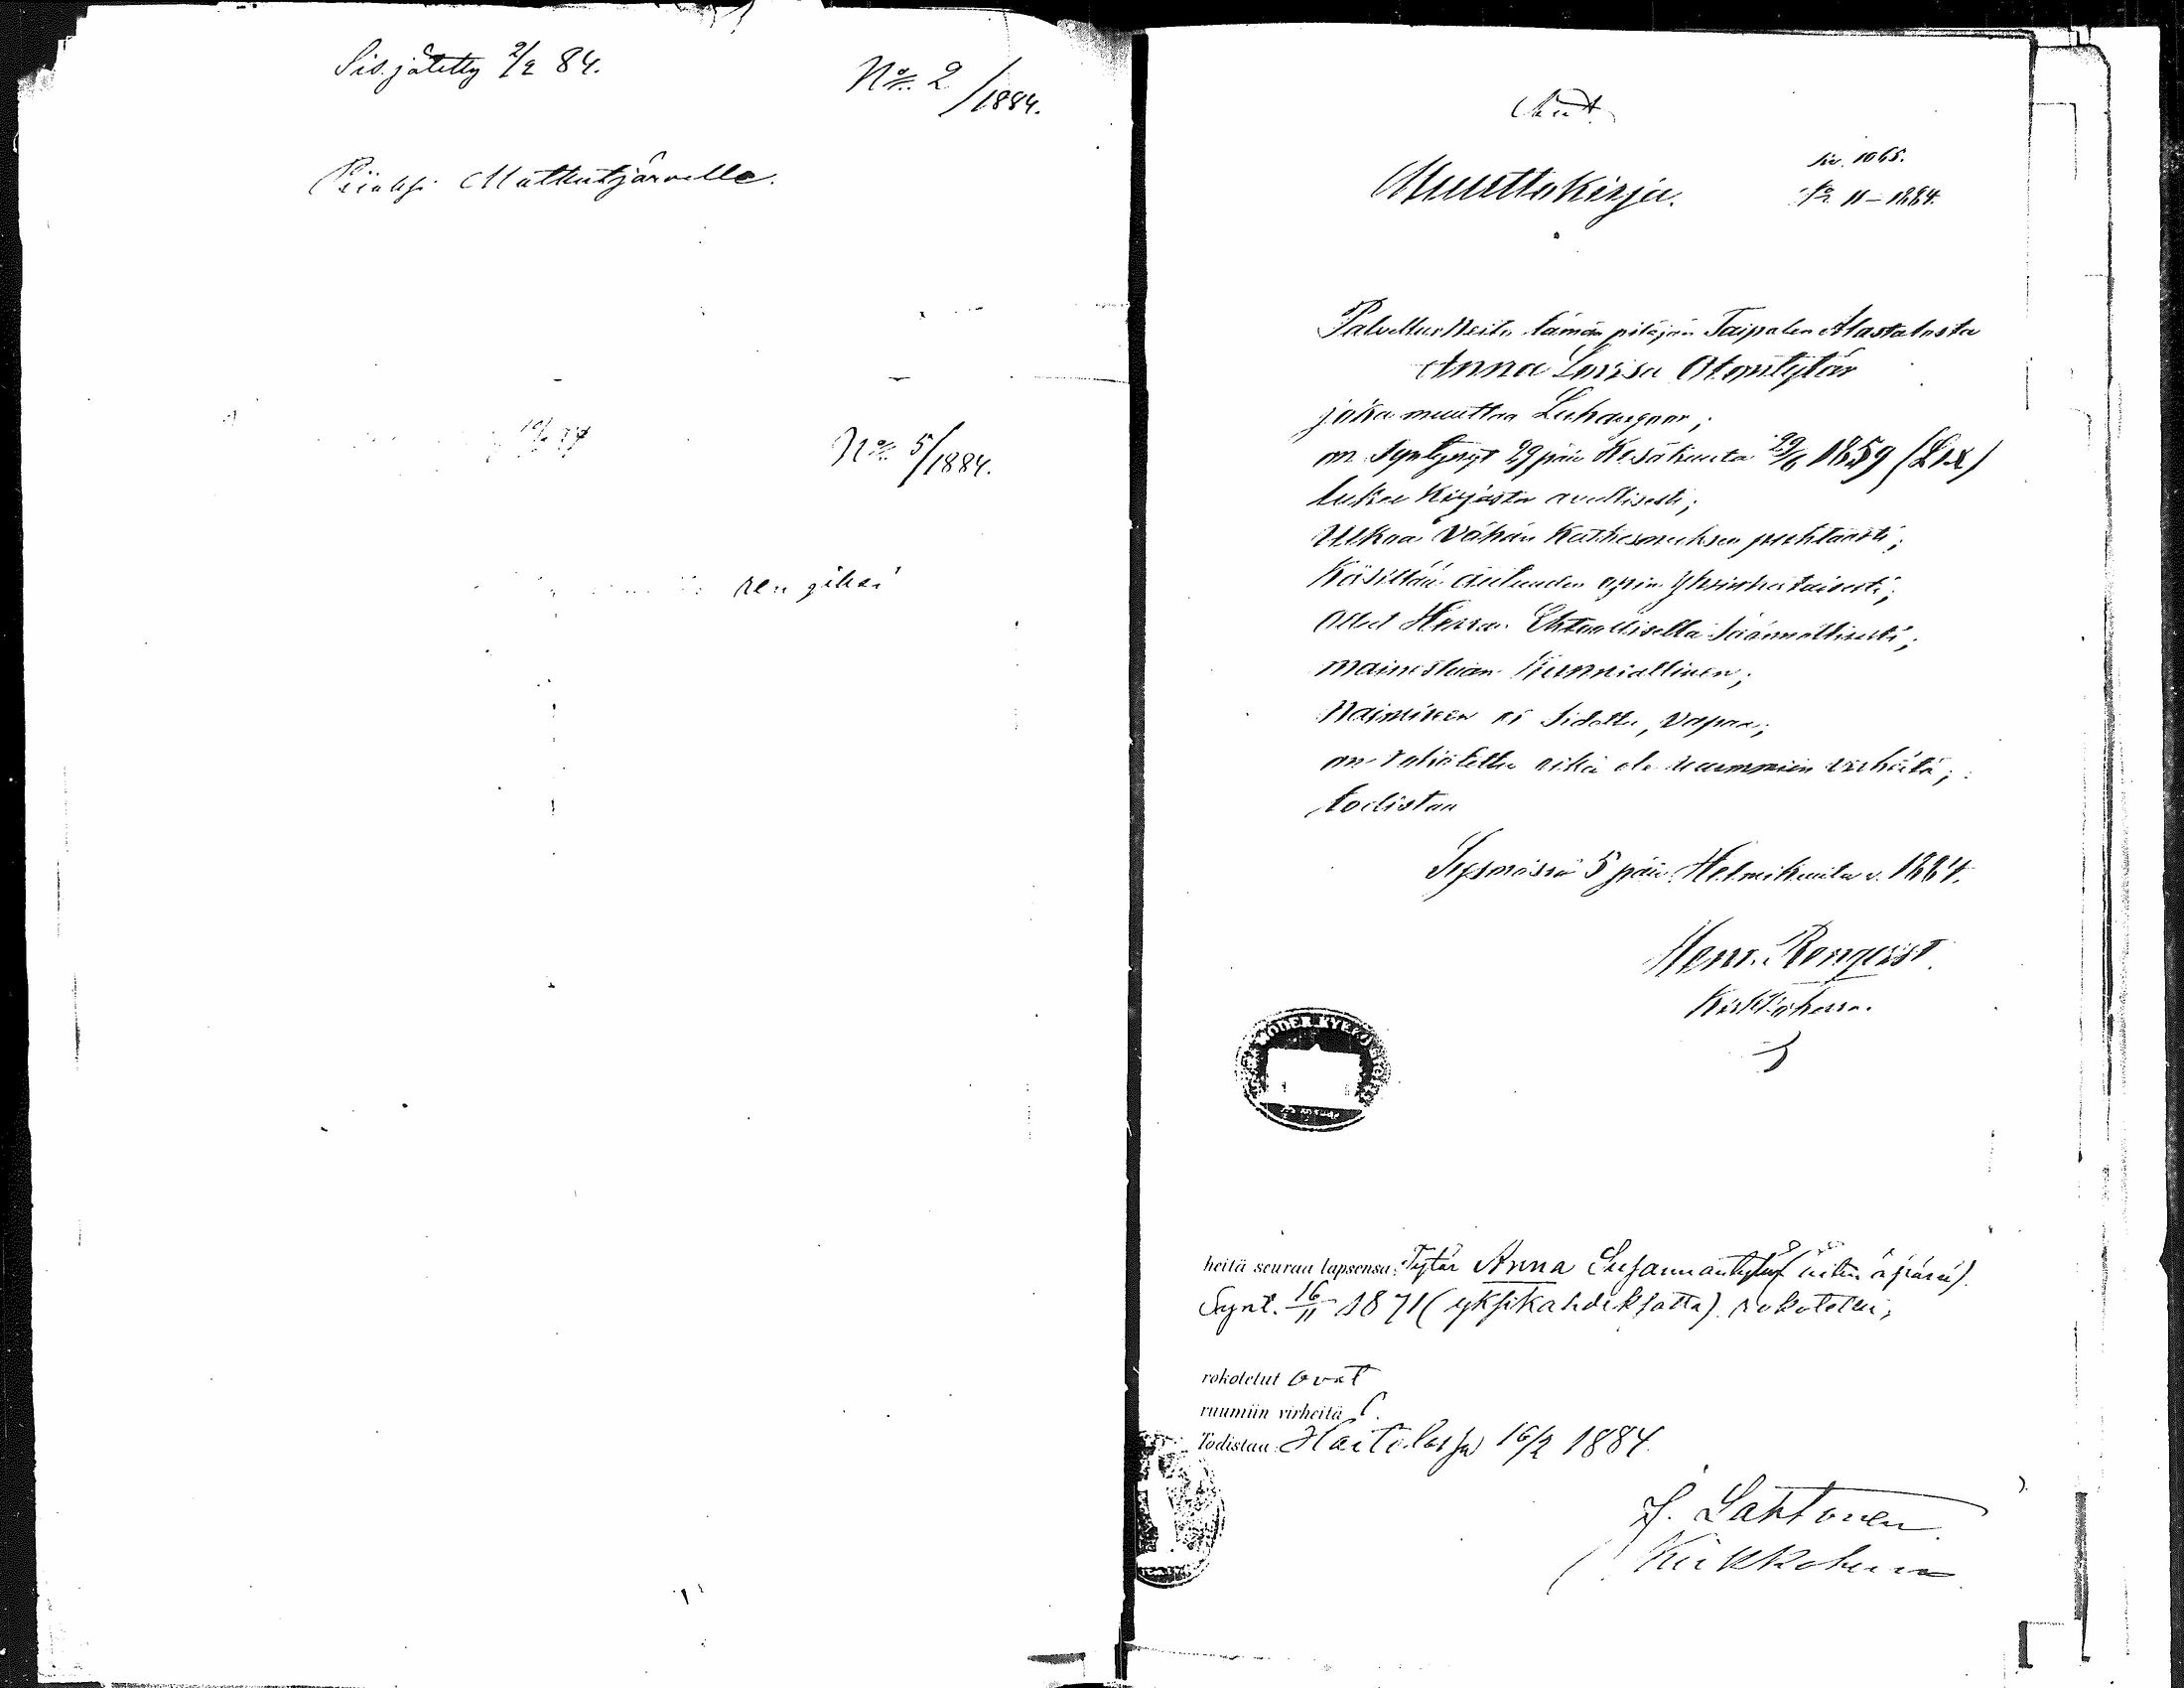 Sis. jätetty 2/2 84.
No 2/1884.
Piiaksi Matkutjärvelle.
No 5/1884.
rengiksi
Muuttokirja.
Siv. 1065.
No 11–1884.
Palvelius Neito tämän pitäjän Taipalen Alastalosta
Anna Lovisa
joka muuttaa Luhangaan;
on syntynyt 29 pän Kesäkuuta 29/6 1859 (Lix)
lukee Kirjasta avullisesti;
Ulkoa Vähän Katkesmuksen puhtaasti;
Käsittää autuuden opin Yksinkertaisesti;
Ollut Herran Ehtoollisella säännöllisesti;
maineeltaan Kunniallinen;
Naimiseen ei sidottu, vapaa;
on rokotettu eikä ole ruummiin virheitä;
todistaa
Sysmässä 5 pän Helmikuuta v. 1884.
Henr. Renqvist
Kirkkoherra.
heitä seuraa lapsensa: Tytär Anna Susannantytär
Synt. 16/11 1871 (yksikahdeksatta) rokotettu;
rokotetut ovat
ruumiin virheitä
Todistaa: Hartolassa 16/2 1884.
J. Lahtonen
Kirkkoherra